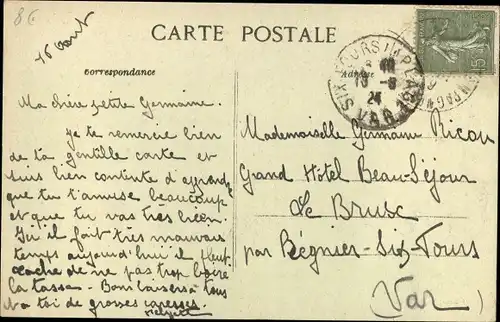 8€
CARTE POSTALE
16 Aout
Correspondance
Adresse
SIX-FOURS LA PLAGE
24
VAR
15
Ma chère petite Germaine.
Je te remercie bien
de ta gentille carte et
suis bien contente d'apprendre
que tu t'amuse beaucoup
et que tu vas très bien.
Ici il fait très mauvais
temps aujourd'hui il pleut.
tache de ne pas trop boire
la tasse - Bons baisers à tous
à toi de grosses caresses.
Mademoiselle Germaine Ricou
Grand Hôtel Beau-Séjour
Le Brusc
par Régnier-Six-Fours
(Var)